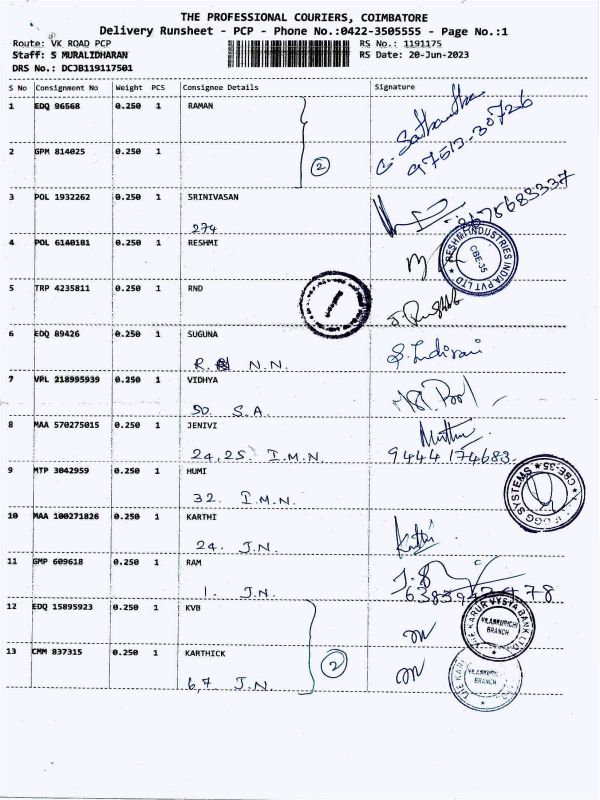 THE PROFESSIONAL COURIERS, COIMBATORE
Delivery Runsheet - PCP - Phone No.:0422-3505555 - Page No.:1
Route: VK ROAD PCP RS No.: 1191175
Staff: S MURALIDHARAN RS Date: 20-Jun-2023
DRS No.: DCJB119117501
S No Consignment No Weight PCS Consignee Details Signature
1 EDQ 96568 0.250 1 RAMAN
2 GPM 814025 0.250 1
2
3 POL 1932262 0.250 1 SRINIVASAN
274
4 POL 6140181 0.250 1 RESHMI
RESHMI INDUSTRIES INDIA PVT LTD
CBE-35
5 TRP 4235811 0.250 1 RND
6 EDQ 89426 0.250 1 SUGUNA
R. N.N. S. Indirani
7 VPL 218995939 0.250 1 VIDHYA
50. S.A.
8 MAA 570275015 0.250 1 JENIVI
24,25. I.M.N. 9444 174683
9 MTP 3042959 0.250 1 HUMI
32. I.M.N. SYSTEMS CBE-35
10 MAA 100271826 0.250 1 KARTHI
24. J.N. Karthi
11 GMP 609618 0.250 1 RAM
1. J.N.
12 EDQ 15895923 0.250 1 KVB
THE KARUR VYSYA BANK LTD
VILANKURICHI
BRANCH
13 CMM 837315 0.250 1 KARTHICK
2
6,7 J.N.
VILANKURICHI
BRANCH